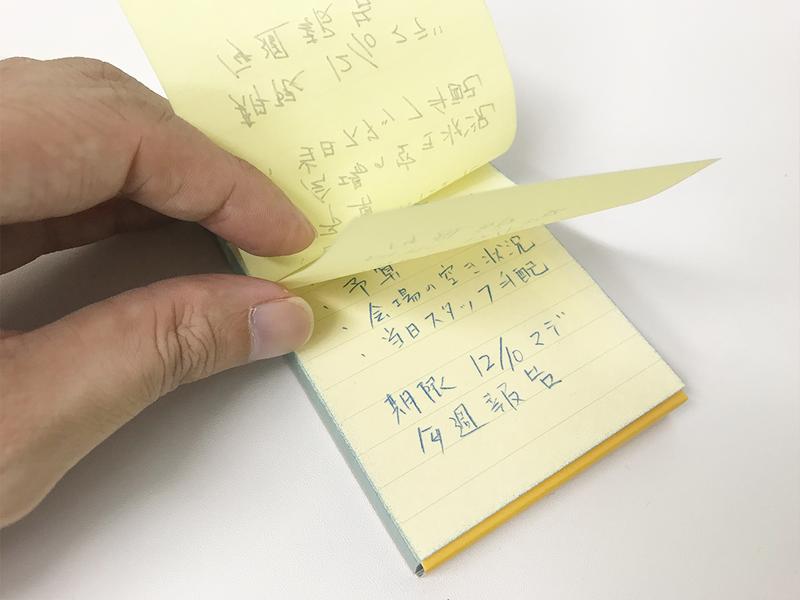 ・予算
・会場の空き状況
・当日スタッフ手配
期限 12/10マデ
毎週報告